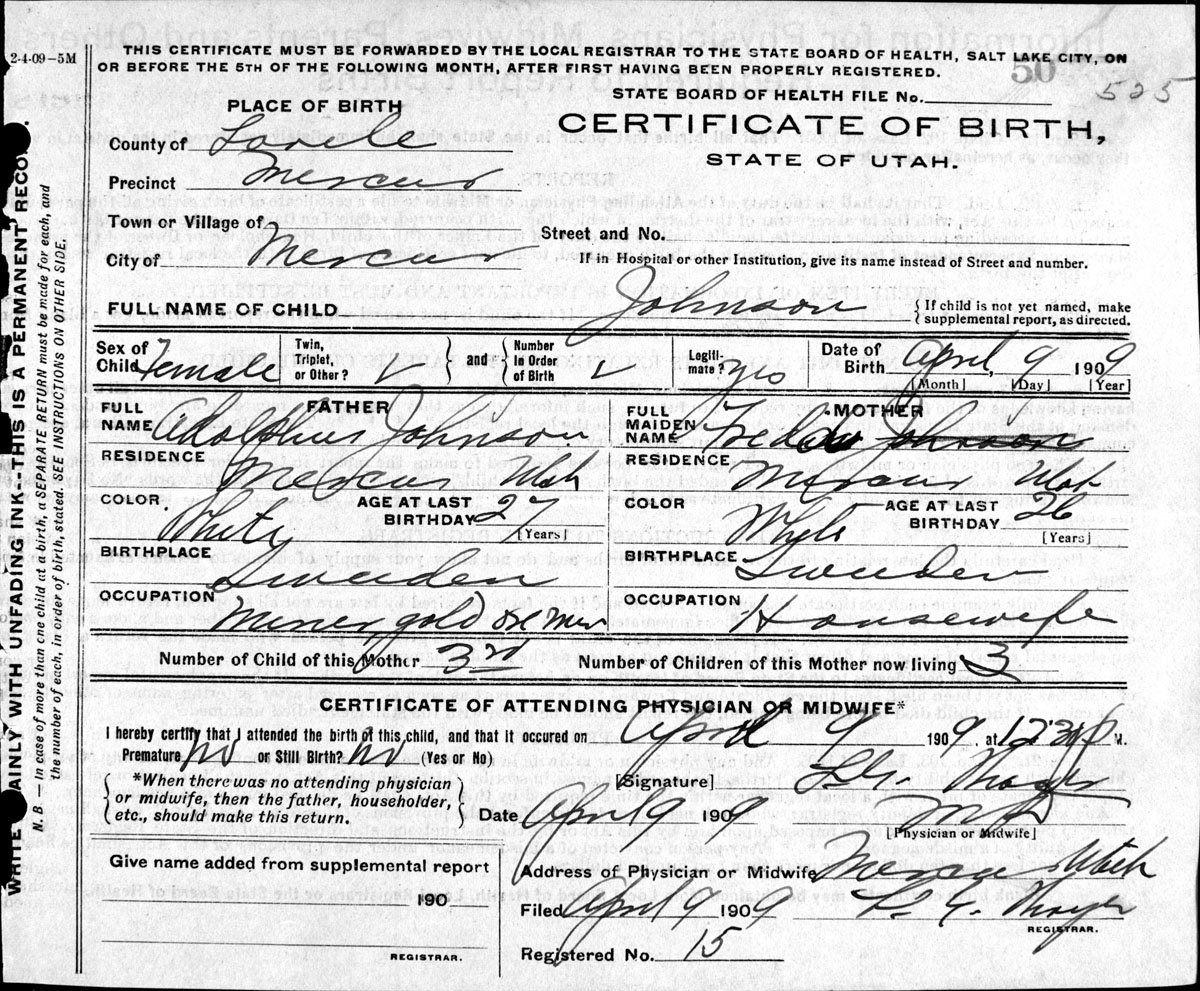 2-4-09-5M
THIS CERTIFICATE MUST BE FORWARDED BY THE LOCAL REGISTRAR TO THE STATE BOARD OF HEALTH, SALT LAKE CITY, ON
OR BEFORE THE 5TH OF THE FOLLOWING MONTH, AFTER FIRST HAVING BEEN PROPERLY REGISTERED.
50
525
STATE BOARD OF HEALTH FILE No.
PLACE OF BIRTH
CERTIFICATE OF BIRTH,
STATE OF UTAH.
County of
Precinct Mercur
Town or Village of
Street and No.
City of Mercur
If in Hospital or other Institution, give its name instead of Street and number.
FULL NAME OF CHILD Johnson { If child is not yet named, make supplemental report, as directed.
Sex of Child Female Twin, Triplet, or Other? } and { Number in Order of Birth Legiti-mate? yes Date of Birth April, 9 1909
[Month] [Day] [Year]
FATHER
FULL NAME Adolphus Johnson
RESIDENCE Mercur Utah
COLOR White AGE AT LAST BIRTHDAY 27 [Years]
BIRTHPLACE Sweden
OCCUPATION Miner, gold
MOTHER
FULL MAIDEN NAME Johnson
RESIDENCE Mercur Utah
COLOR White AGE AT LAST BIRTHDAY 26 [Years]
BIRTHPLACE Sweden
OCCUPATION Housewife
Number of Child of this Mother 3rd Number of Children of this Mother now living 3
CERTIFICATE OF ATTENDING PHYSICIAN OR MIDWIFE*
I hereby certify that I attended the birth of this child, and that it occured on April 9 1909, at 12 30 P M.
Premature? no or Still Birth? no (Yes or No)
*When there was no attending physician or midwife, then the father, householder, etc., should make this return.
[Signature]
Date April 9 1909 MD
[Physician or Midwife]
Give name added from supplemental report
190
REGISTRAR.
Address of Physician or Midwife Mercur Utah
Filed April 9 1909
REGISTRAR.
Registered No. 15
WRITE PLAINLY WITH UNFADING INK-THIS IS A PERMANENT RECORD.
N. B.-in case of more than one child at a birth, a SEPARATE RETURN must be made for each, and
the number of each, in order of birth, stated. SEE INSTRUCTIONS ON OTHER SIDE.